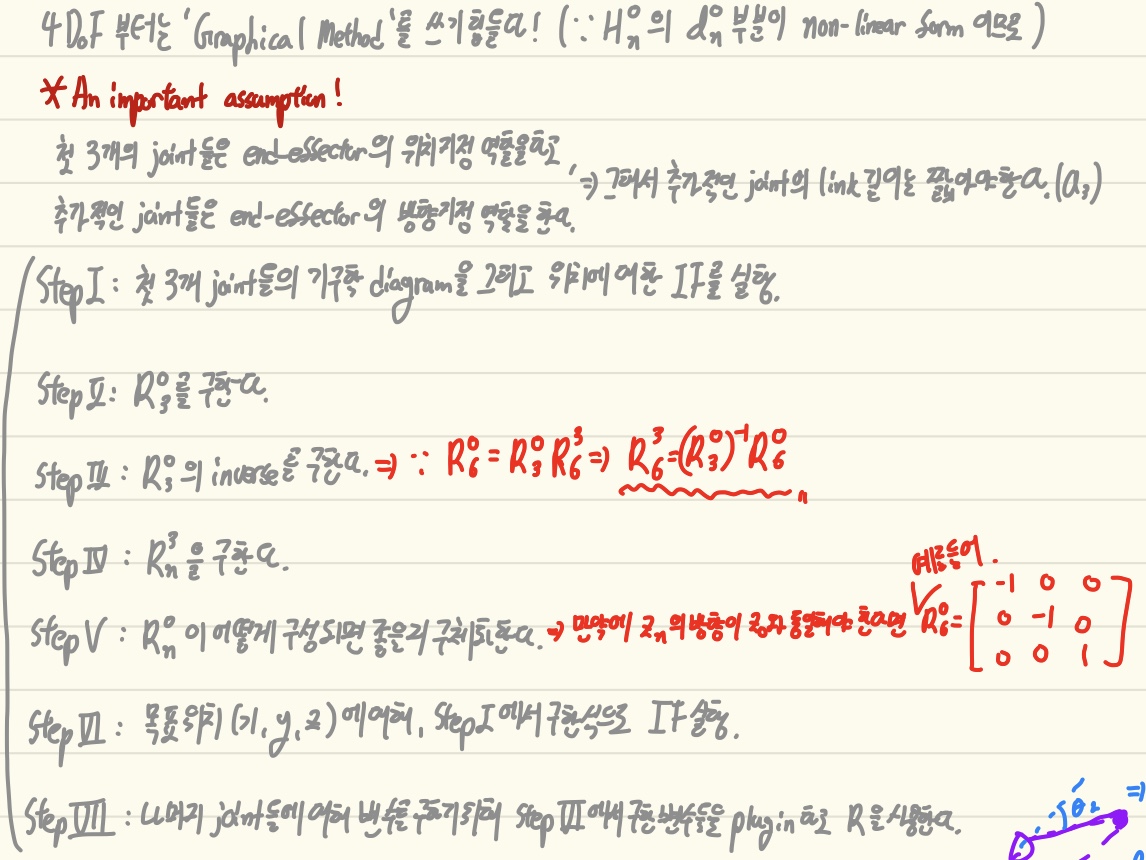 4DoF 부터는 'Graphical Method'를 쓰기힘들다! (∵ H_n^0의 d_n^0 부분이 non-linear form 이므로)
* An important assumption!
첫 3개의 joint들은 end-effector의 위치지정 역할을하고,
추가적인 joint들은 end-effector의 방향지정 역할을 한다.
⇒ 그래서 추가적인 joint의 link 길이는 짧아야한다.
Step I : 첫 3개 joint들의 기구학 diagram을 그리고 위치에 대한 IF를 실행.
Step II : R_3^0를 구한다.
Step III : R_3^0의 inverse를 구한다. ⇒ ∵ R_6^0 = R_3^0 R_6^3 ⇒ R_6^3 = (R_3^0)^-1 R_6^0
Step IV : R_n^3을 구한다.
예를들어.
Step V : R_n^0이 어떻게 구성되면 좋은지 구체화한다. ⇒ 만약에 z_n의 방향이 z_0와 동일해야 한다면 R_6^0 =
-1 0 0
0 -1 0
0 0 1
Step VI : 목표위치 (x, y, z)에 대해, Step I에서 구한식으로 IF 실행.
Step VII : 나머지 joint들에 대해 변수를 구하기위해 Step III에서 구한변수들을 plug in 하고 R을 사용한다.
θ_2 ⇒